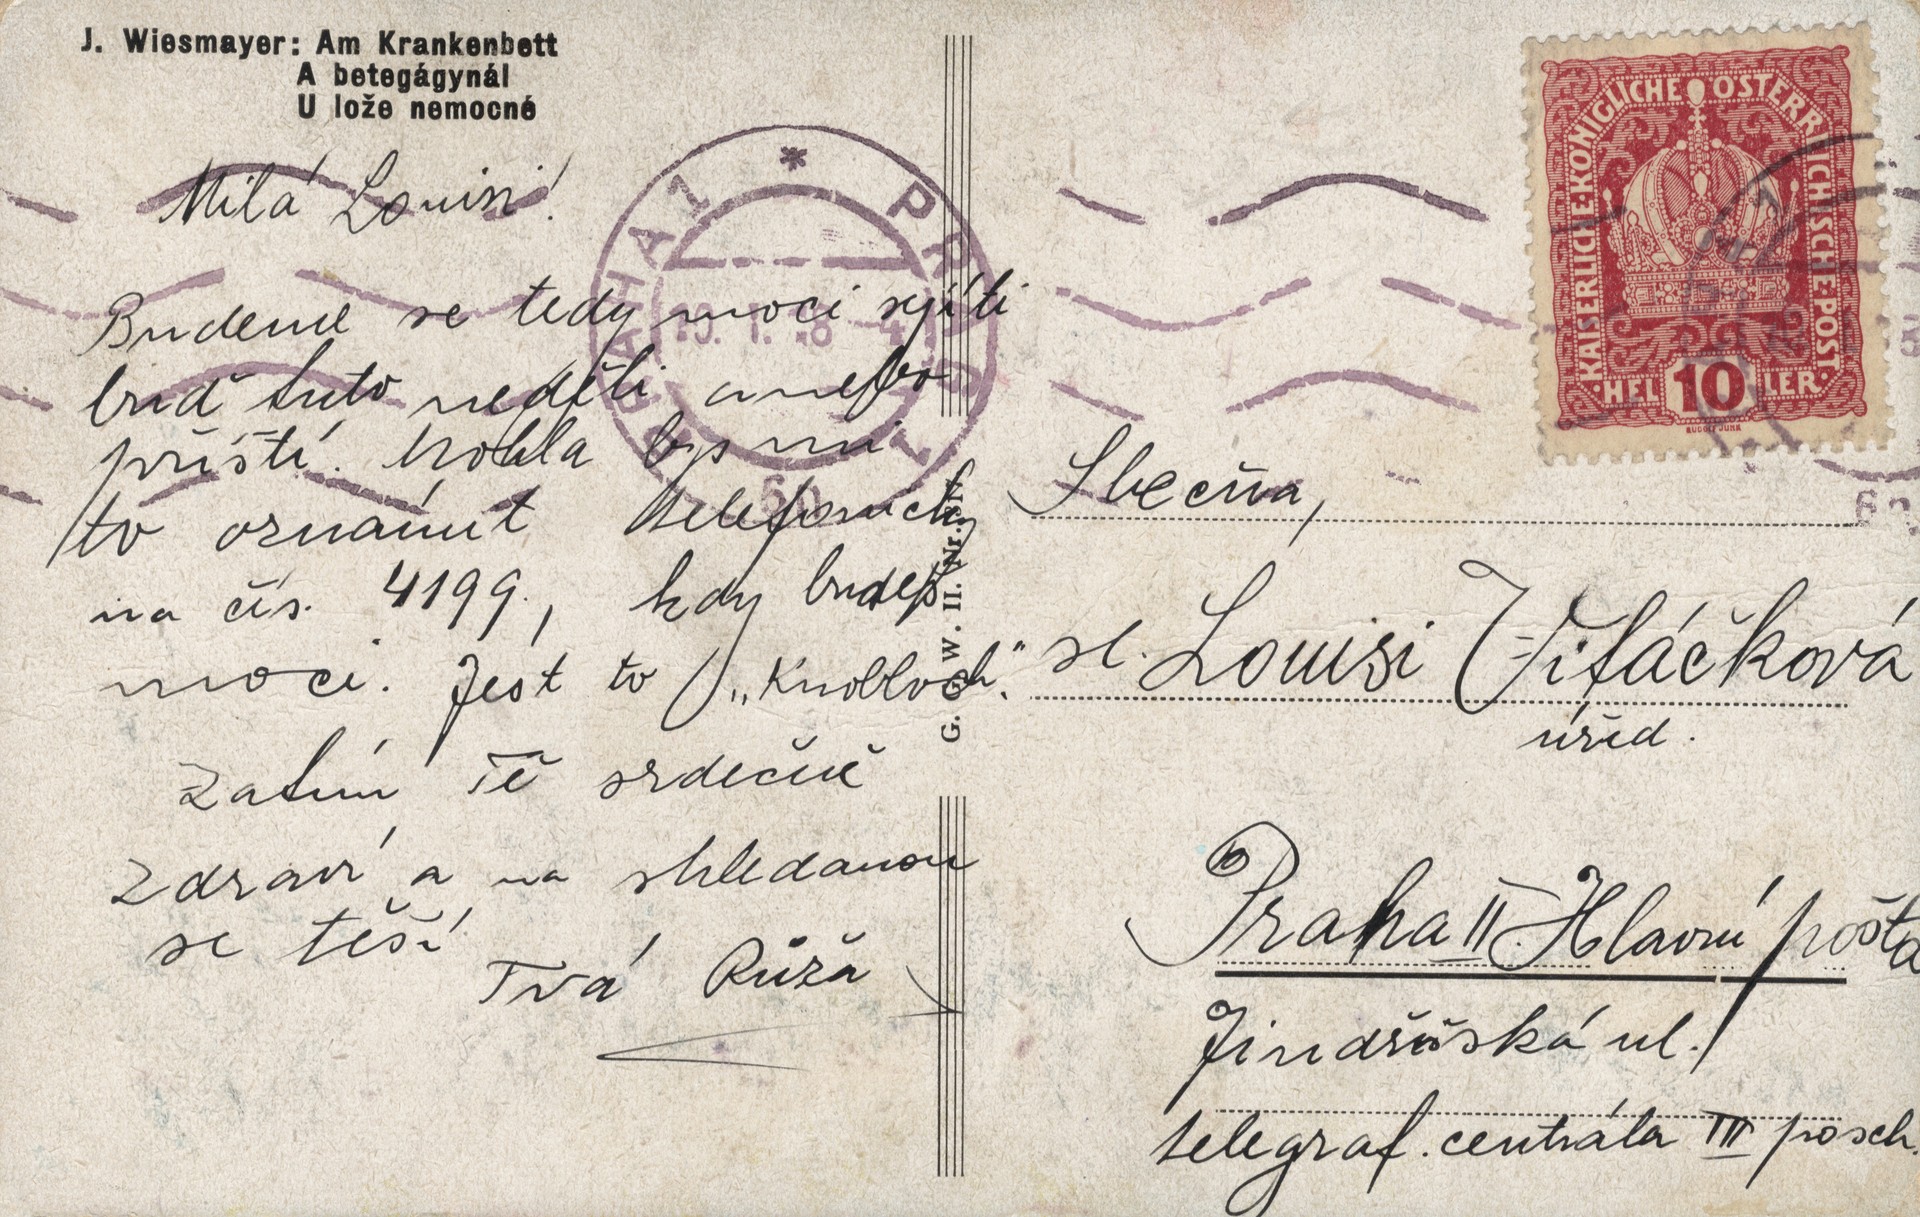 J. Wiesmayer: Am Krankenbett
A betegágynál
U lože nemocné
Milá Louisi!
Budeme se tedy moci sejíti
buď tuto neděli anebo
příští. Mohla bys mi
to oznámit telefonicky
na čís. 4199., kdy budeš
moci. Jest to „Knobloch“.
Zatím Tě srdečně
zdraví a na shledanou
se těší
Tvá Růža
PRAHA 1
* PRAG 1
G. G. W. II. Nr.
KAISERLICHE KÖNIGLICHE ÖSTERREICHISCHE POST
HELLER
10
RUDOLF JUNK
Slečna,
sl. Louisi Vitáčková
úřed.
Praha II. Hlavní pošta
Jindřišská ul.
telegraf. centrála III posch.